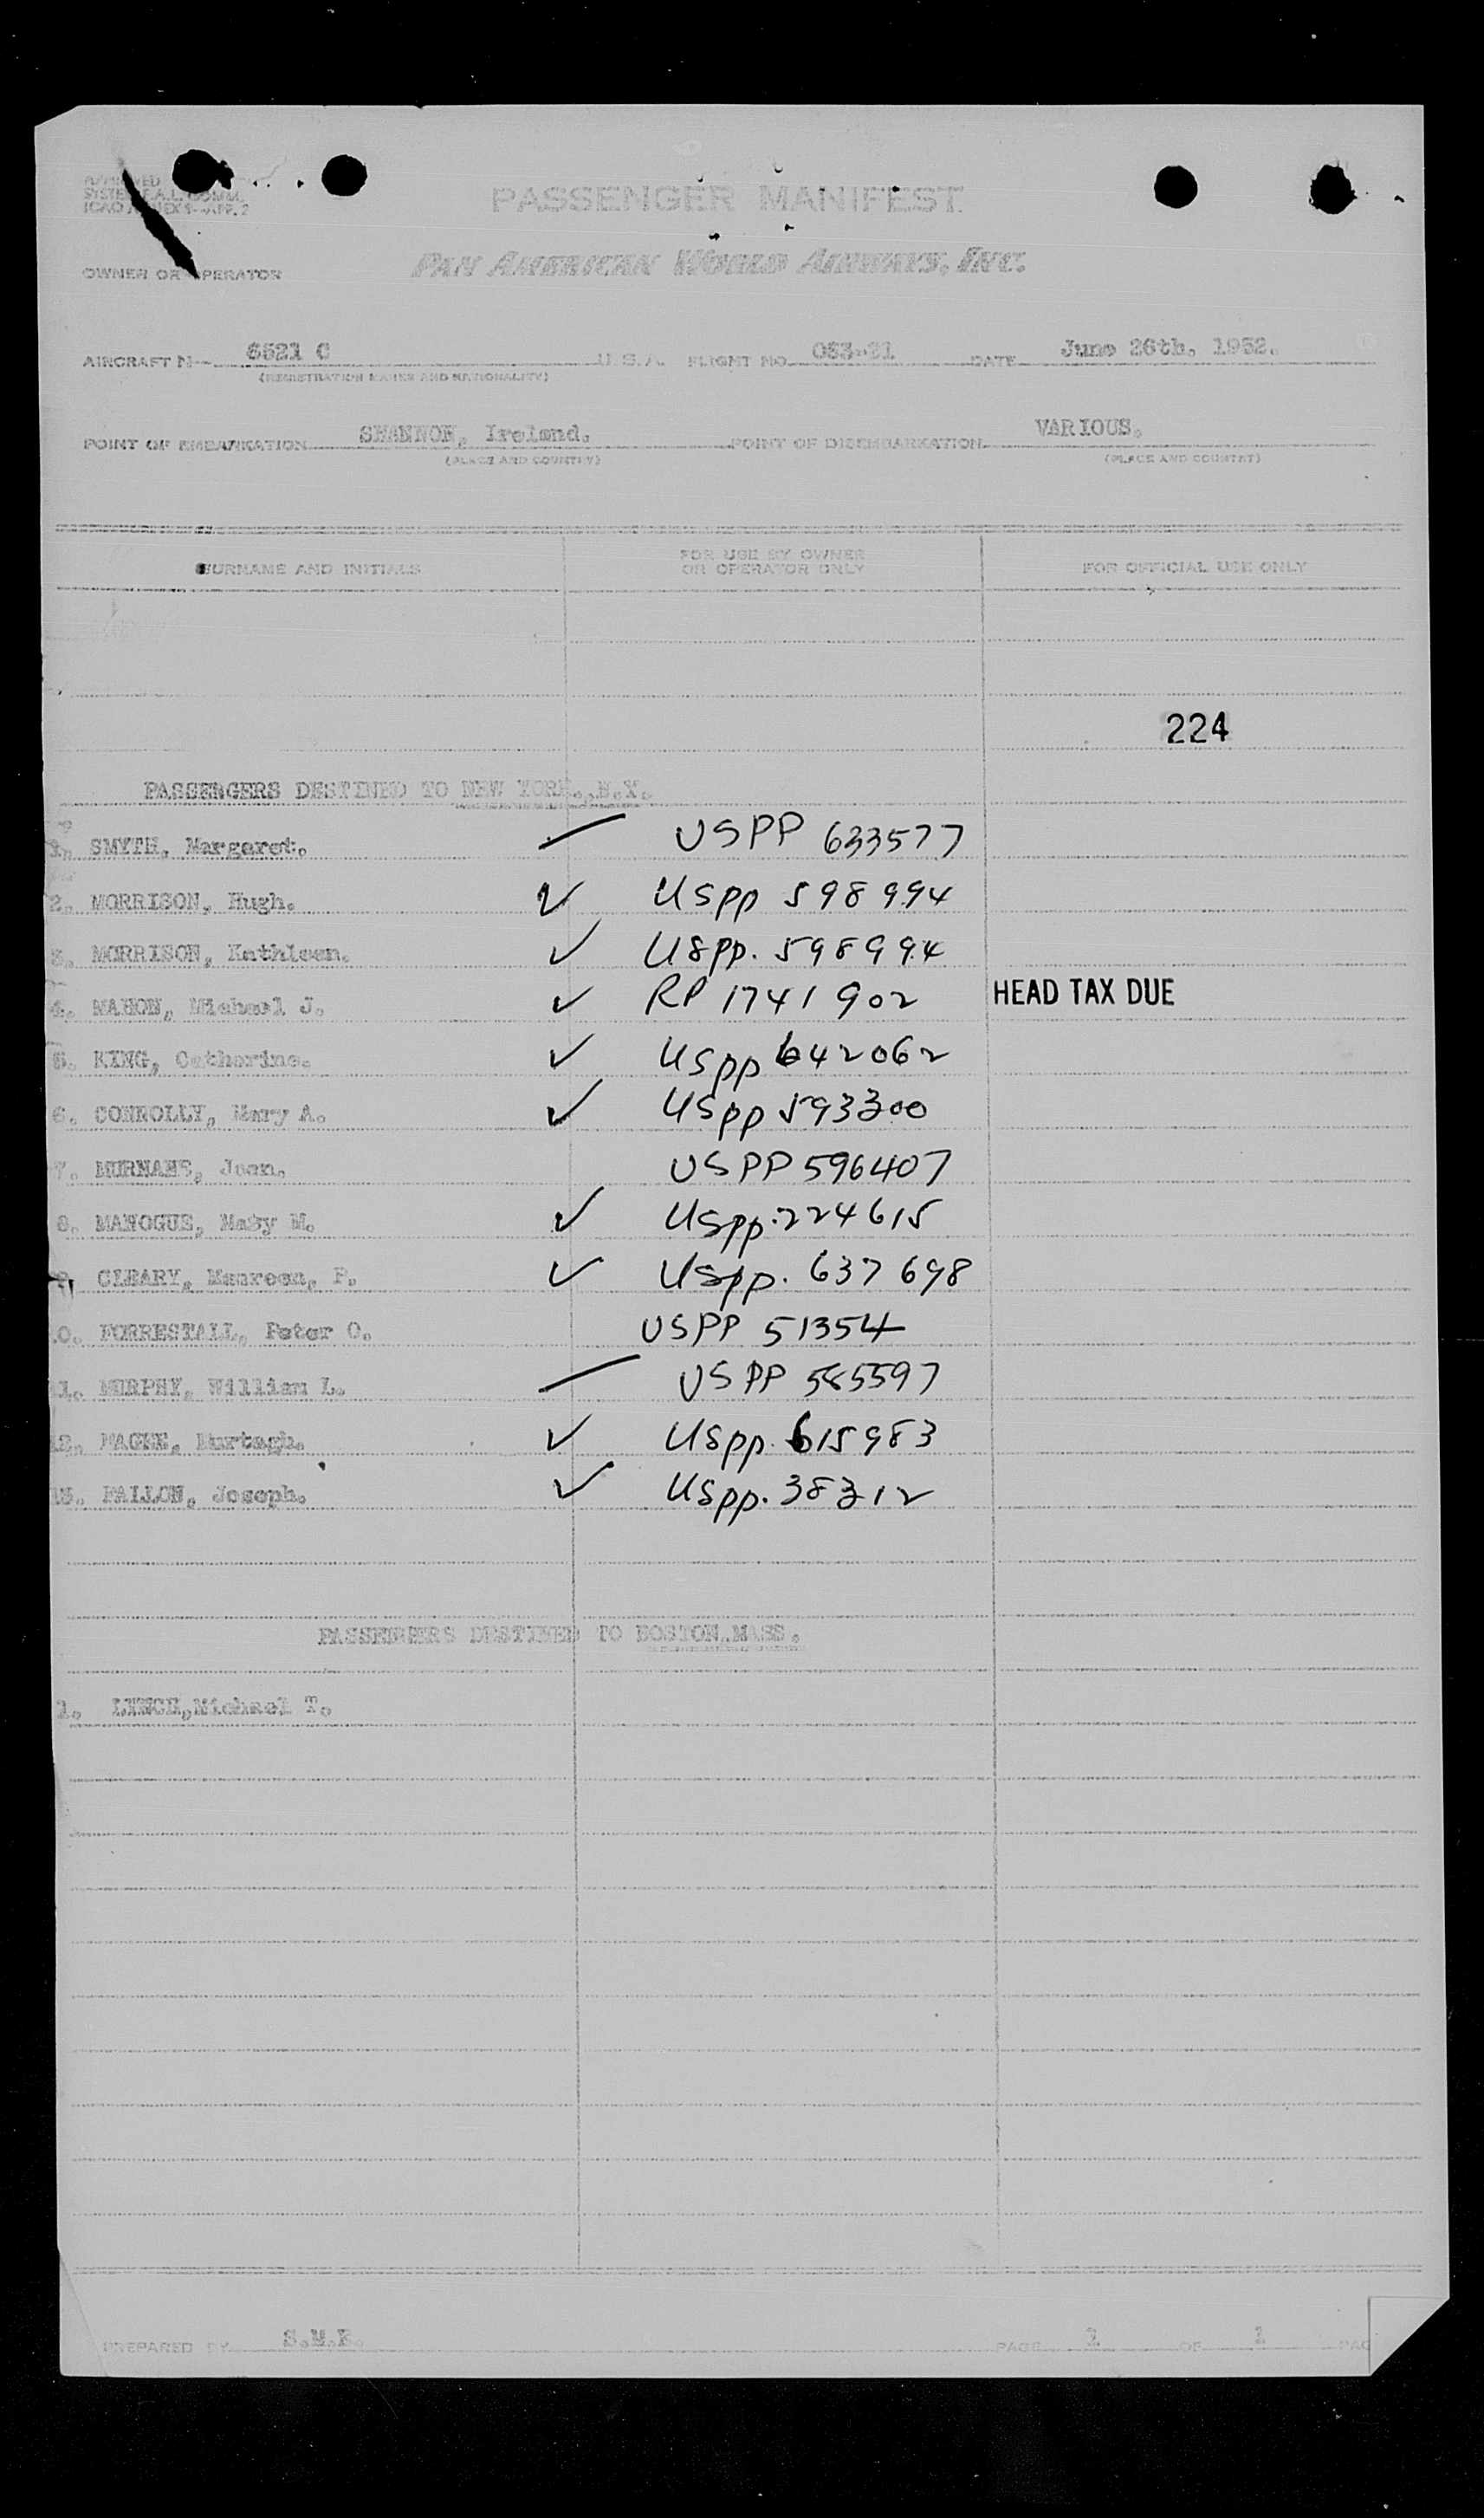 PASSENGER MANIFEST
PAN AMERICAN WORLD AIRWAYS, INC.
OWNER OR OPERATOR
AIRCRAFT N-- 6521 C U.S.A. FLIGHT NO. 053-21 DATE June 26th, 1952.
(REGISTRATION MARKS AND NATIONALITY)
POINT OF EMBARKATION SHANNON, Ireland. POINT OF DISEMBARKATION VARIOUS.
(PLACE AND COUNTRY) (PLACE AND COUNTRY)
SURNAME AND INITIALS FOR USE BY OWNER OR OPERATOR ONLY FOR OFFICIAL USE ONLY
224
PASSENGERS DESTINED TO NEW YORK., N.Y.
1. SMYTH, Margaret. USPP 633577
2. MORRISON, Hugh. ✓ USpp 598994
3. MORRISON, Kathleen. ✓ USpp. 598994
4. MAHON, Michael J. ✓ RP 1741902 HEAD TAX DUE
5. KING, Catherine. ✓ USpp 642062
6. CONNOLLY, Mary A. ✓ USpp 593300
7. MURNANE, Joan. USPP 596407
8. MANOGUE, Mary M. ✓ USpp. 224615
9. CLEARY, Maureen, P. ✓ USpp. 637698
0. FORRESTALL, Peter O. USPP 51354
11. MURPHY, William L. USPP 585597
12. MAGEE, Murtagh. ✓ USpp. 615983
13. FALLON, Joseph. ✓ USpp. 38312
PASSENGERS DESTINED TO BOSTON.MASS.
1. LYNCH,Michael T.
PREPARED BY
PAGE 1 OF 1